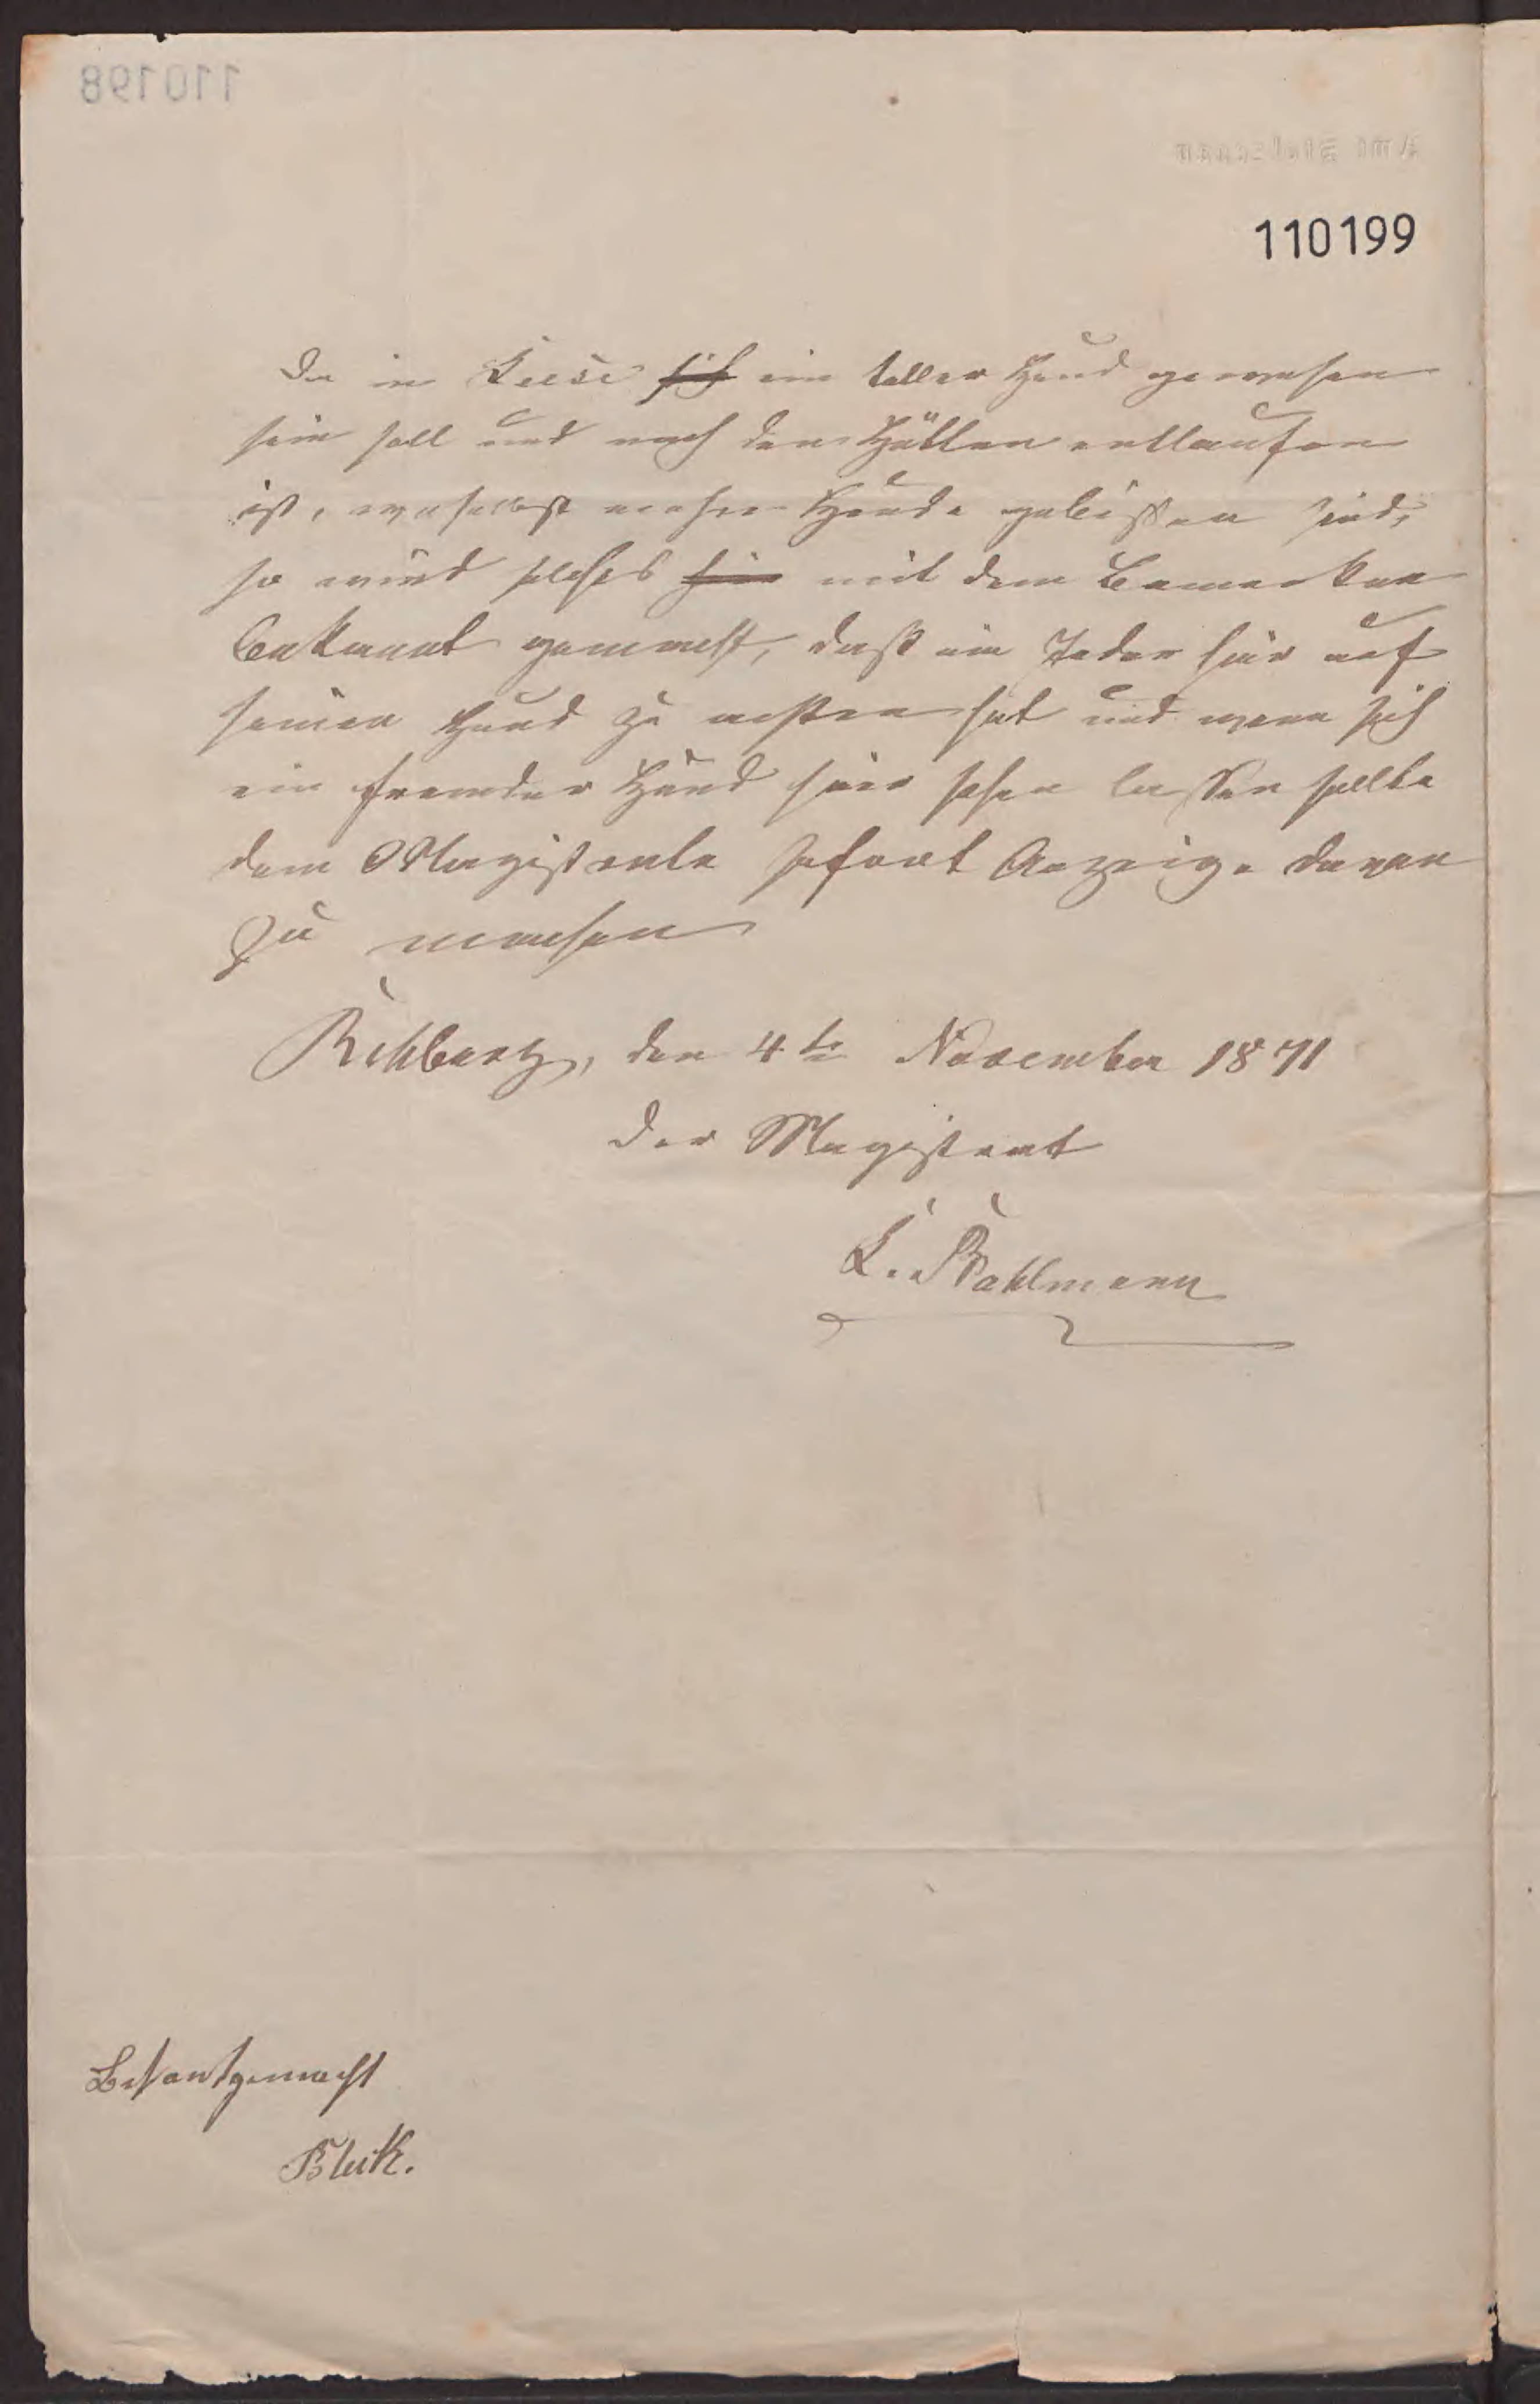 110199
Da in Leese sich ein toller Hund gewesen
sein soll und nach den Hütten entlaufen
ist, woselbst mehre Hunde gebissen sind,
so wird solches hier mit dem Bemerken
bekannt gemacht, daß ein Jeder hier auf
seinen Hund zu achten hat und wenn sich
ein fremder Hund hier sehen lassen sollte
dem Magistrate sofort Anzeige davon
zu machen
Rehburg, den 4te November 1871
Der Magistrat
Bekantgemacht